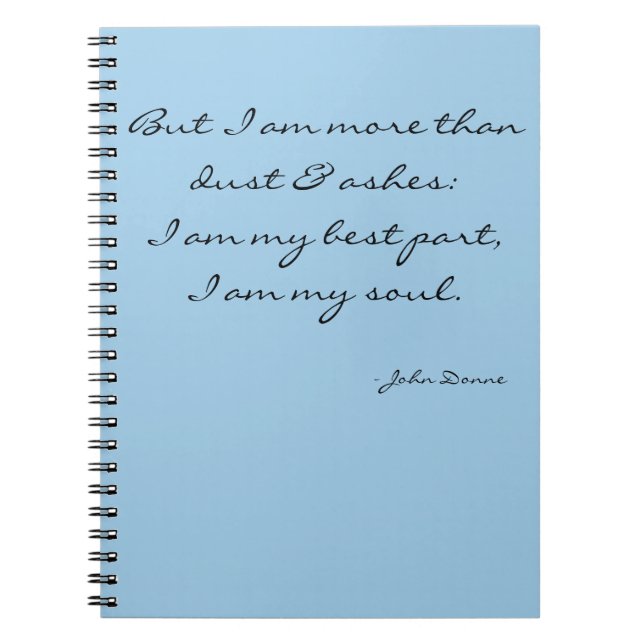 But I am more than
dust & ashes:
I am my best part,
I am my soul.
- John Donne